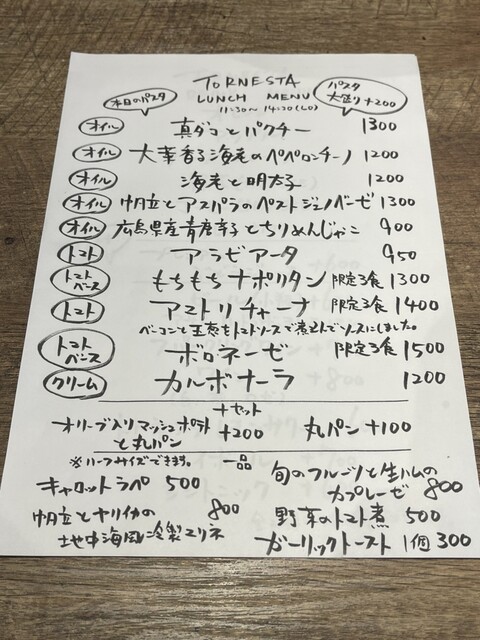 TORNESTA
LUNCH MENU
11:30〜14:30(LO)
本日のパスタ
パスタ
大盛り+200
オイル 真ダコとパクチー 1300
オイル 大葉香る海老のペペロンチーノ 1200
オイル 海老と明太子 1200
オイル 帆立とアスパラのペストジェノベーゼ 1300
オイル 広島県産青唐辛子とちりめんじゃこ 900
トマト アラビアータ 950
トマトベース もちもちナポリタン 限定3食 1300
トマト アマトリチャーナ 限定3食 1400
ベーコンと玉葱をトマトソースで煮込んでソースにしました。
トマトベース ボロネーゼ 限定3食 1500
クリーム カルボナーラ 1200
+セット
オリーブ入りマッシュポテト
と丸パン +200 丸パン +100
※ハーフサイズできます。 一品
キャロットラペ 500
旬のフルーツと生ハムの
カプレーゼ 800
帆立とヤリイカの 800
地中海風冷製マリネ
野菜のトマト煮 500
ガーリックトースト 1個 300